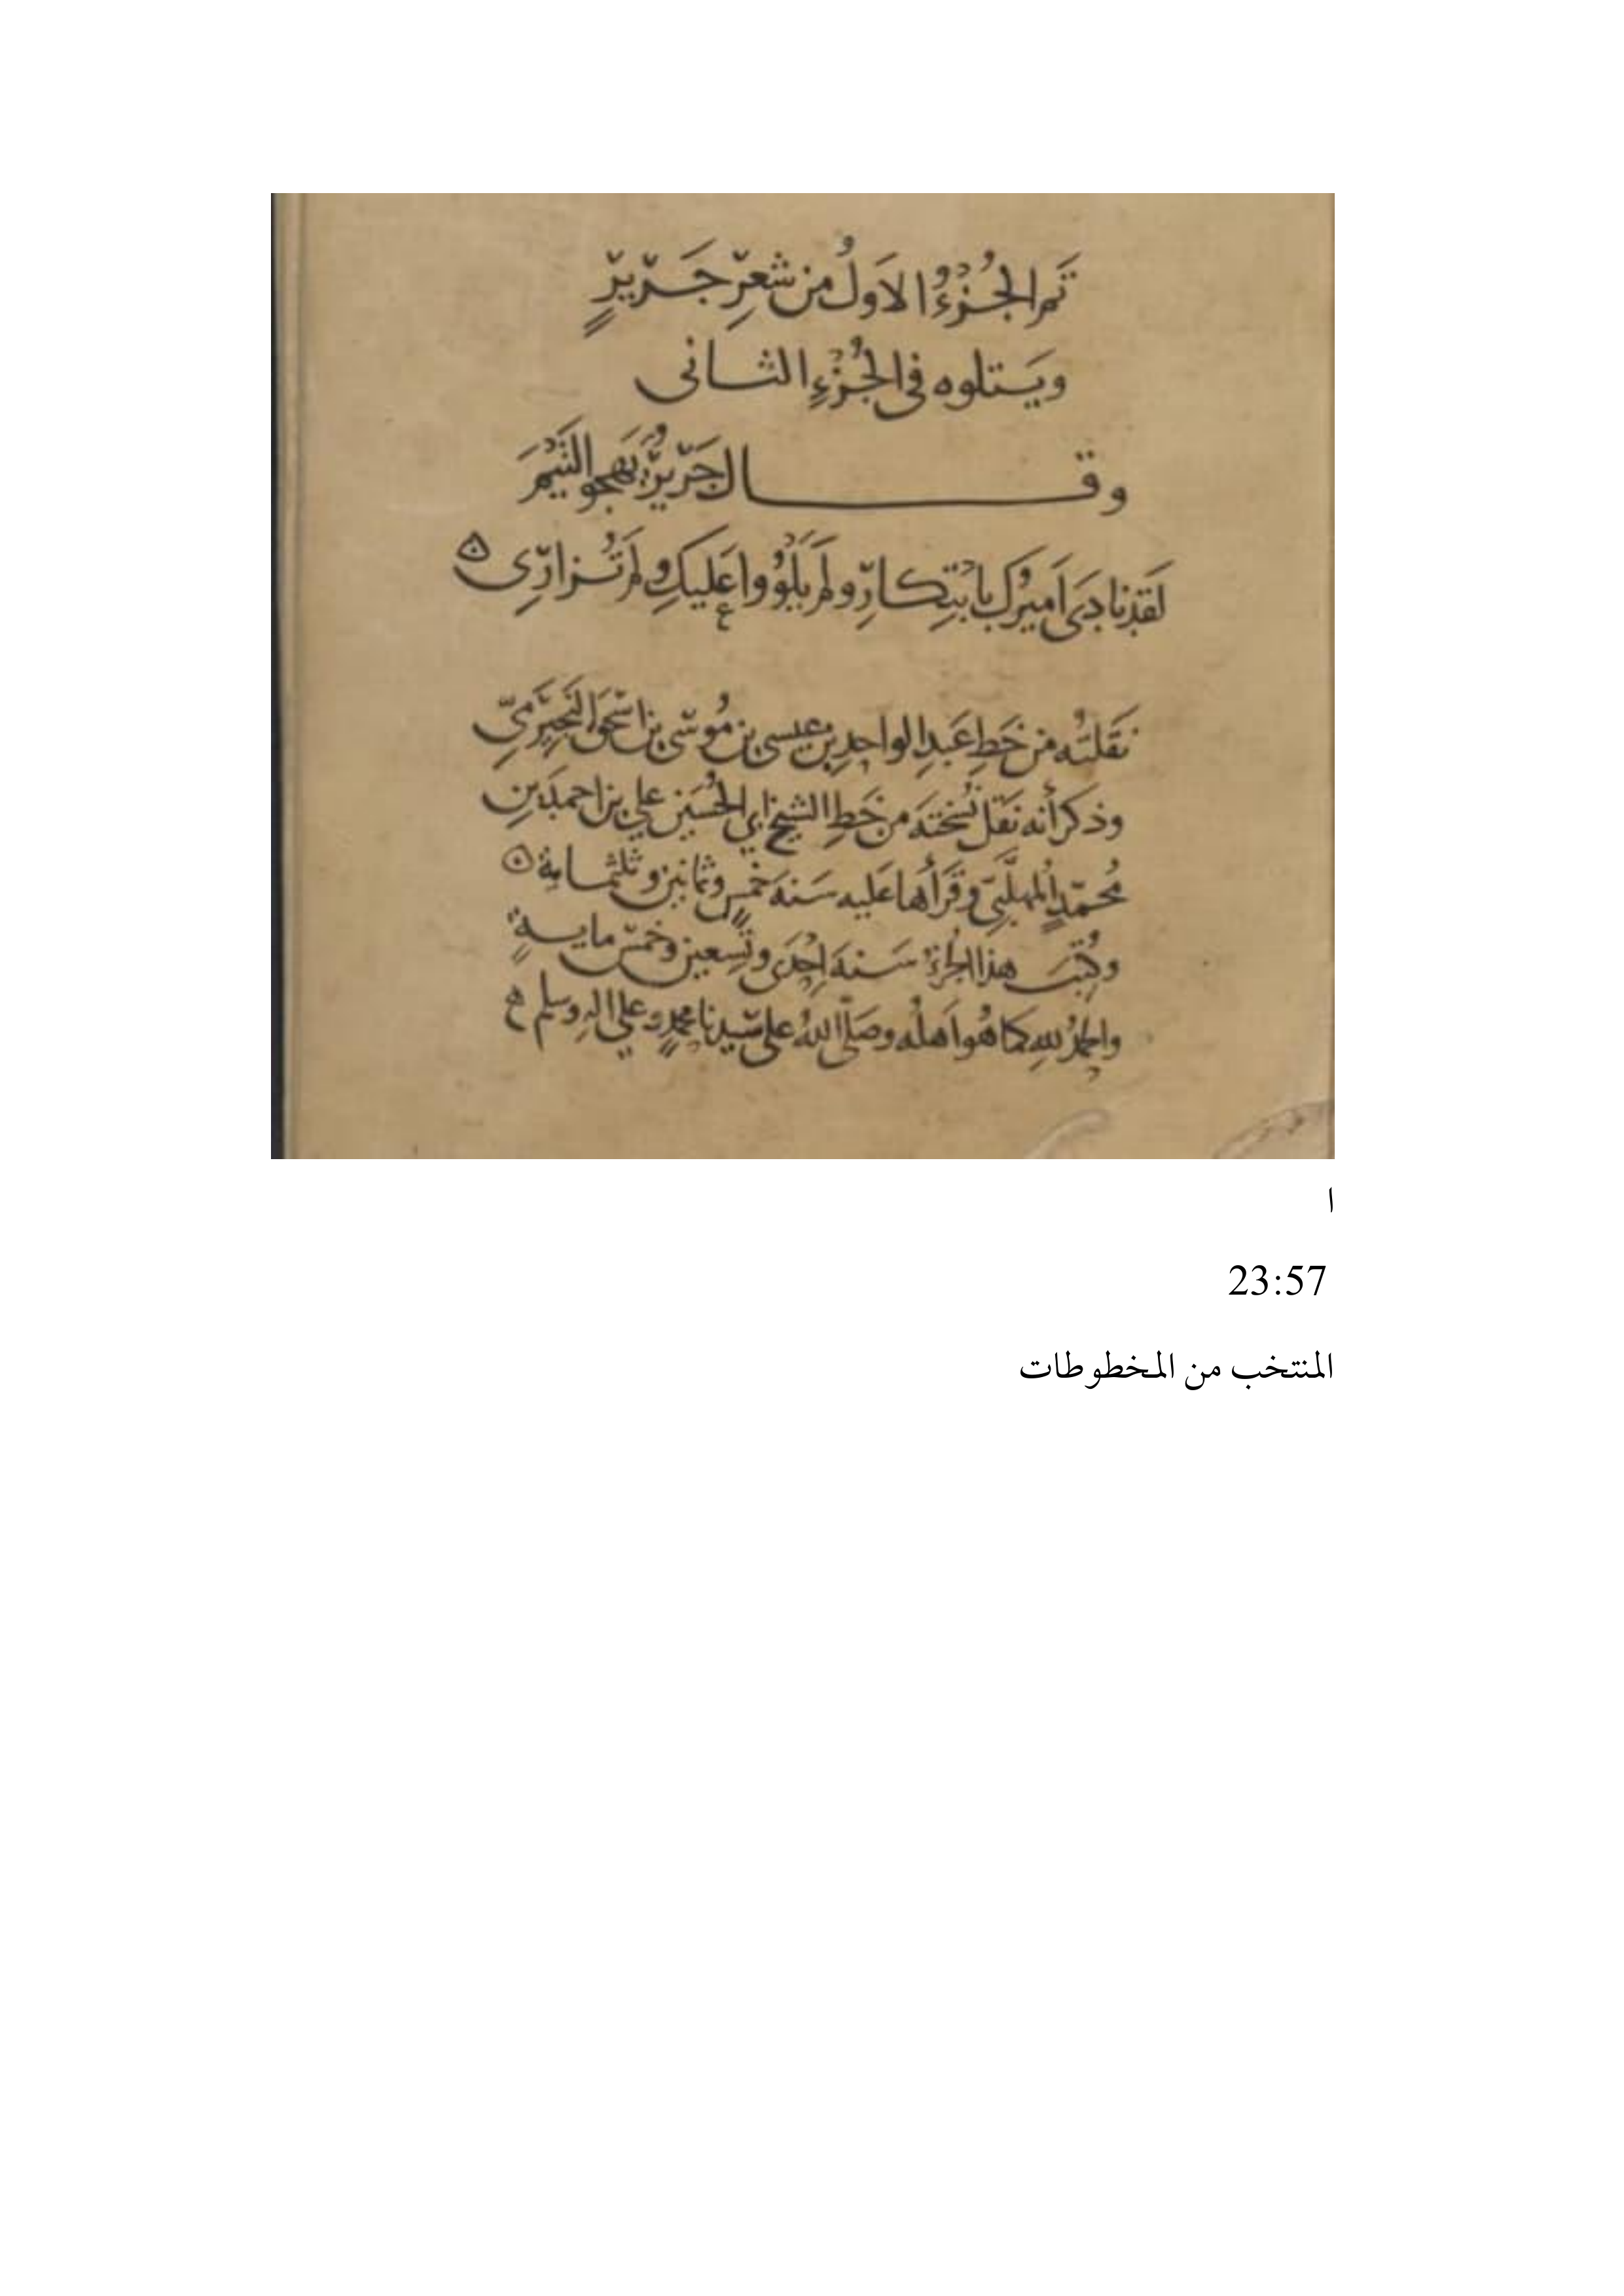 تَم الجُزْءُ الاَولُ مِن شعرِ جَريرٍ
ويَتلوه في الجُزْءِ الثاني
وقال جَريرٌ يَهجو التَيْمَ
لَقَدْ نادَى اَميرُكِ بابْتِكارِ ولَم يَلْوُوا عَليكِ ولم تُزارِي
نَقَلتُه من خَطِ عَبدِ الواحِدِ بنِ عيسى بن مُوسى بن اسحٰق النَجيرَميّ
وذكر أنه نَقَل نُسْختَه من خَطِ الشيخ ابي الحُسَين علي بن احمدَ بنِ
مُحمّدٍ المُهلَّبيّ وقَرَأها عَليه سَنةَ خمسٍ وثمانين وثلثماية
وكُتِبَ هذا الجُزءُ سَنةَ اِحْدَى وتِسعين وخمس مايةٍ
والحمدُ للهِ كما هُو اَهلُه وصَلّى اللهُ على سَيدنا محمدٍ وعلي الهِ وسلم
ا
23:57
المنتخب من المخطوطات